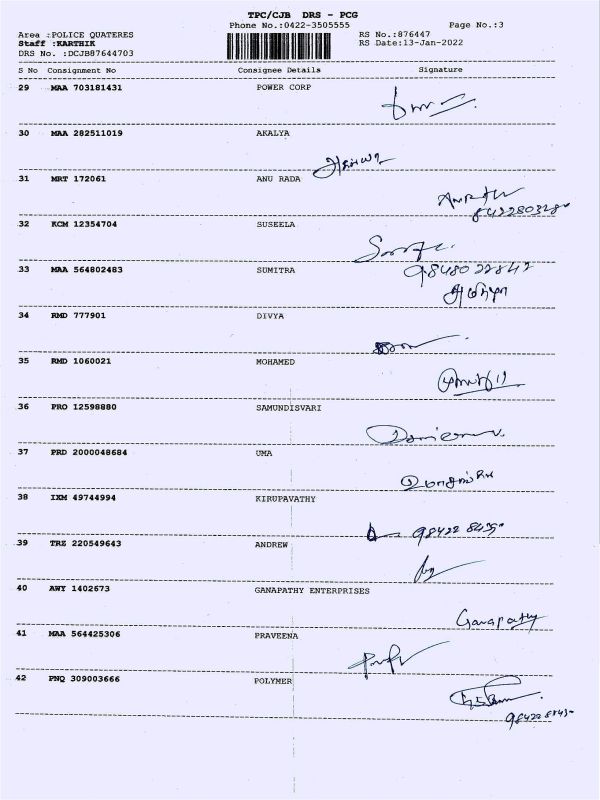 TPC/CJB DRS - PCG
Phone No.:0422-3505555
Page No.:3
Area :POLICE QUATERES
RS No.:876447
Staff :KARTHIK
RS Date:13-Jan-2022
DRS No. :DCJB87644703
S No Consignment No Consignee Details Signature
29 MAA 703181431 POWER CORP
30 MAA 282511019 AKALYA
31 MRT 172061 ANU RADA
32 KCM 12354704 SUSEELA
33 MAA 564802483 SUMITRA
9848022842
34 RMD 777901 DIVYA
35 RMD 1060021 MOHAMED
36 PRO 12598880 SAMUNDISVARI
37 PRD 2000048684 UMA
38 IXM 49744994 KIRUPAVATHY
39 TRZ 220549643 ANDREW
40 AWY 1402673 GANAPATHY ENTERPRISES
Ganapathy
41 MAA 564425306 PRAVEENA
42 PNQ 309003666 POLYMER